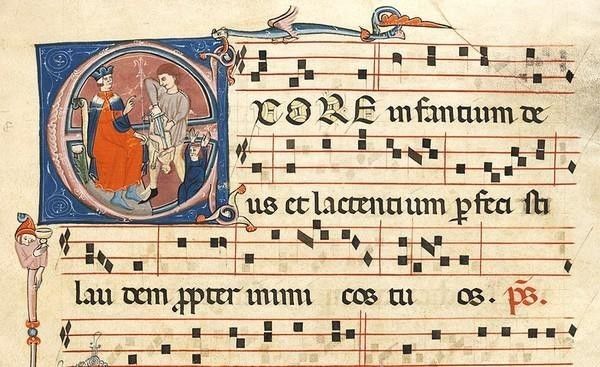 EX ORE infantium de
us et lactentium ꝑfeci sti
lau dem ꝓpter inimi cos tu os. p̄s.